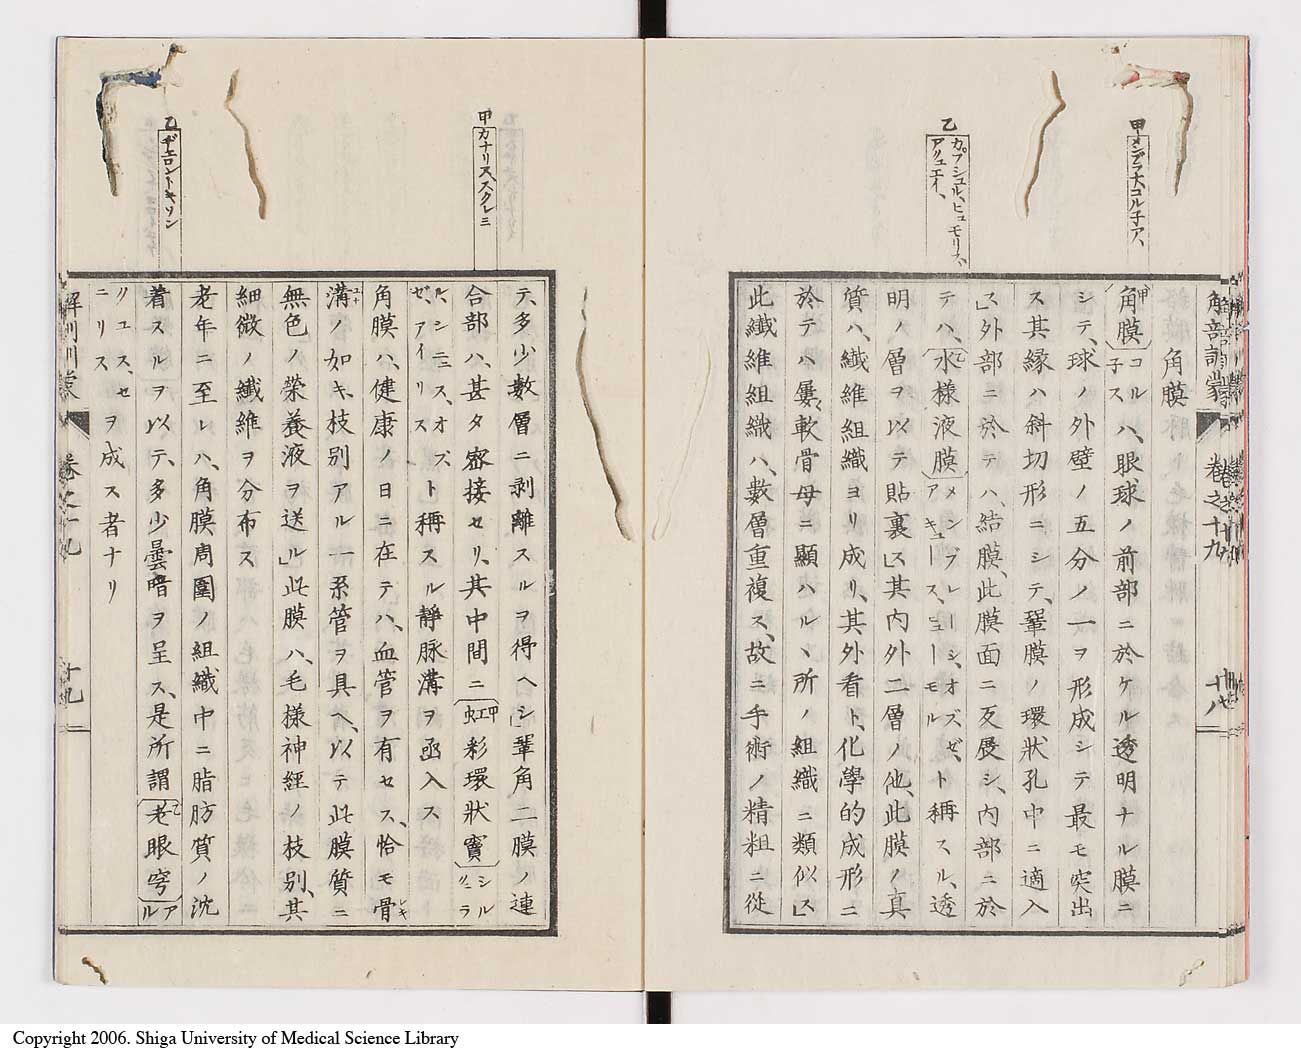 甲
メンブラ、コルチア、
乙
カプシュル、ヒュモリス、
アクュエイ、
解剖訓蒙
巻之十九
十八
角膜
角膜コルチスハ、眼球ノ前部ニ於ケル透明ナル膜ニ
シテ、球ノ外壁ノ五分ノ一ヲ形成シテ最モ突出
ス其縁ハ斜切形ニシテ、鞏膜ノ環狀孔中ニ適入
ス」外部ニ於テハ、結膜、此膜面ニ反展シ、内部ニ於
テハ、水樣液膜メンブレーン、オブ、ゼ、アキュース、ヒューモルト稱スル、透
明ノ層ヲ以テ貼裏ス」其内外二層ノ他、此膜ノ真
質ハ、纎維組織ヨリ成リ、其外看ト、化學的成形ニ
於テハ屢〻軟骨母ニ顯ハルヽ所ノ組織ニ類似ス」
此纎維組織ハ、數層重複ス、故ニ手術ノ精粗ニ從
甲
カナリス、スクレミ
乙
ヂェロントキソン
テ、多少數層ニ剥離スルヲ得ヘシ」鞏角二膜ノ連
合部ハ、甚タ密接セリ、其中間ニ虹彩環狀竇シルリュラ
ル、シニュス、オブ、ゼ、アイリスト稱スル靜脉溝ヲ函入ス
角膜ハ、健康ノ日ニ在テハ、血管ヲ有セス、恰モ骨
溝ノ如キ、枝別アル一系管ヲ具ヘ、以テ此膜質ニ
無色ノ榮養液ヲ送ル」此膜ハ、毛樣神經ノ枝別、其
細微ノ纎維ヲ分布ス
老年ニ至レハ、角膜周圍ノ組織中ニ脂肪質ノ沈
着スルヲ以テ、多少曇暗ヲ呈ス、是所謂老眼穹アル
リュス、セニリスヲ成ス者ナリ
解剖訓蒙
巻之十九
十九
Copyright 2006. Shiga University of Medical Science Library